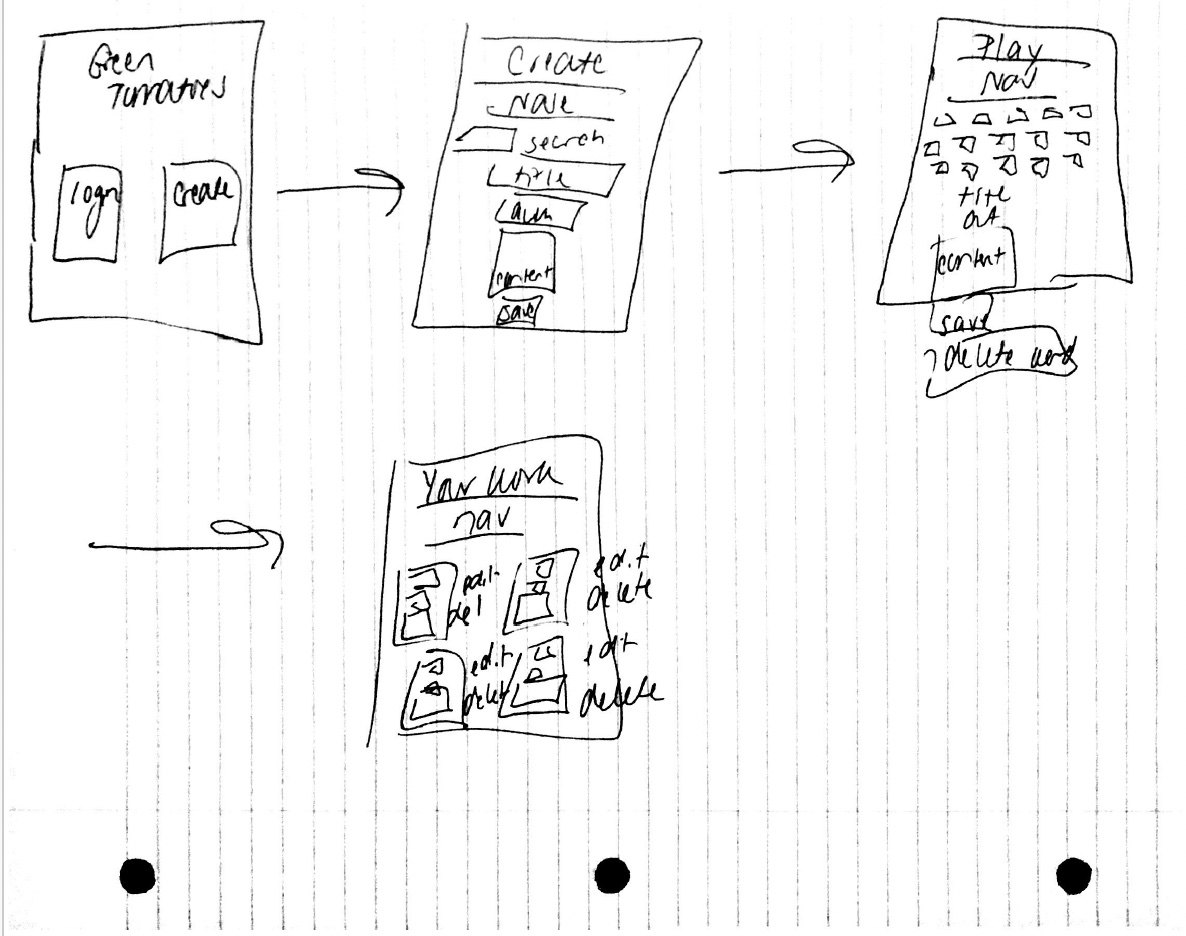 Green
Tomatoes
login
Create
Create
search
title
content
save
Play
Nav
title
content
save
delete
Your work
nav
edit
del
edit
delete
edit
delet
edit
delete